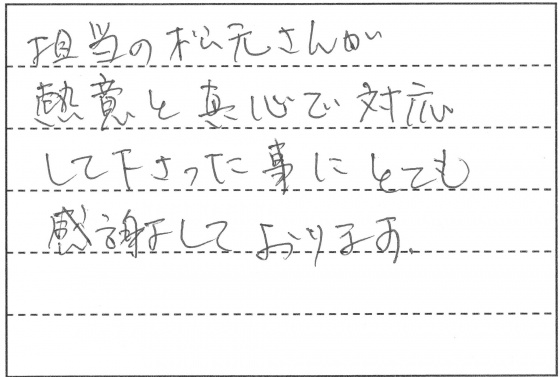 担当の松元さんが
熱意と真心で対応
して下さった事にとても
感謝しております。